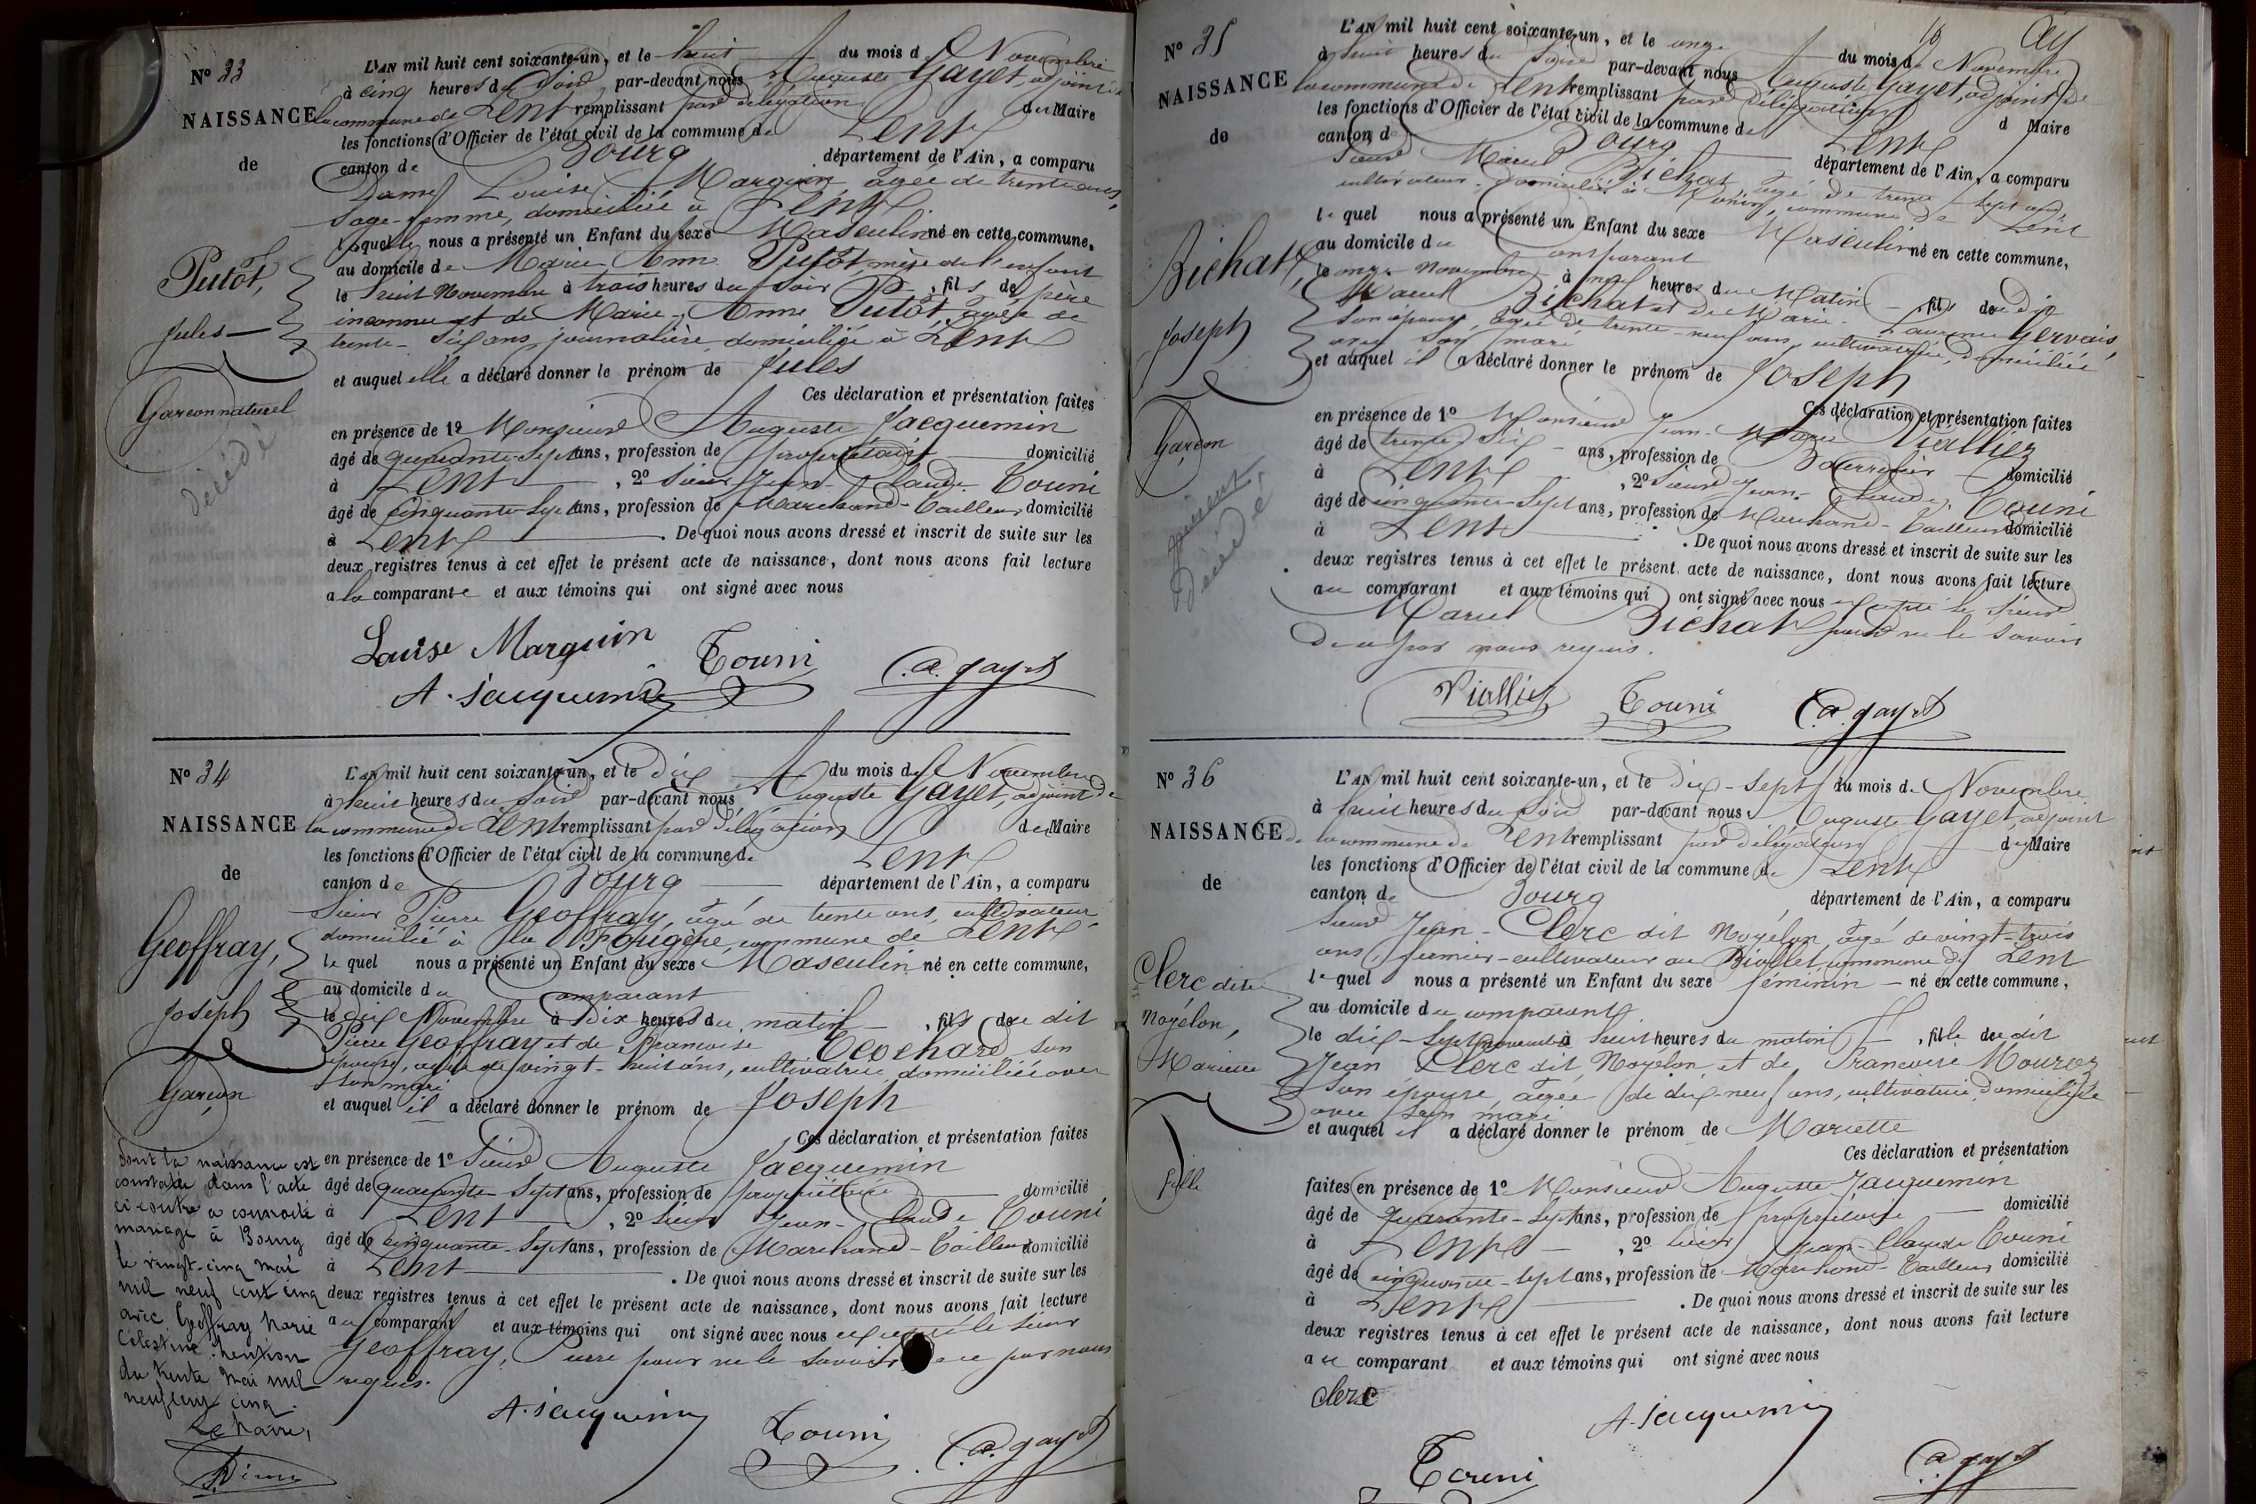 N° 33
NAISSANCE
de
Putot,
Jules
Garçon naturel
décédé
L'AN mil huit cent soixante-un, et le huit du mois de Novembre
à cinq heures du soir par-devant nous Auguste Gayet, adjoint de
la commune de Lent remplissant par délégation du Maire
les fonctions d'Officier de l'état civil de la commune de Lent
canton de Bourg département de l'Ain, a comparu
Dame Louise Marguin, âgée de trente ans,
sage-femme, domiciliée à Lent
laquelle nous a présenté un Enfant du sexe Masculin né en cette commune,
au domicile de Marie Anne Putot, mère de l'enfant
le huit Novembre à trois heures du soir, fils de père
inconnu et de Marie-Anne Putot, âgée de
trente-six ans, journalière, domiciliée à Lent
et auquel elle a déclaré donner le prénom de Jules
Ces déclaration et présentation faites
en présence de 1° Monsieur Auguste Jacquemin
âgé de quarante-sept ans, profession de propriétaire domicilié
à Lent, 2° sieur Jean-Claude Touni
âgé de cinquante-sept ans, profession de Marchand-Tailleur domicilié
à Lent. De quoi nous avons dressé et inscrit de suite sur les
deux registres tenus à cet effet le présent acte de naissance, dont nous avons fait lecture
a la comparante et aux témoins qui ont signé avec nous
Louise Marguin Touni a. gayet
A. Jacquemin
N° 34
NAISSANCE
de
Geoffray,
Joseph
Garçon
Dont la naissance est
constatée dans l'acte
ci-contre a contracté
mariage à Bourg
le vingt-cinq mai
mil neuf cent cinq
avec Geoffray Marie
Célestine. Mention
du trente mai mil
neuf cent cinq.
Le Maire,
L'AN mil huit cent soixante-un, et le dix du mois de Novembre
à huit heures du soir par-devant nous Auguste Gayet, adjoint de
la commune de Lent remplissant par délégation du Maire
les fonctions d'Officier de l'état civil de la commune de Lent
canton de Bourg département de l'Ain, a comparu
Sieur Pierre Geoffray, âgé de trente ans, cultivateur
domicilié à la Fougère, commune de Lent
lequel nous a présenté un Enfant du sexe Masculin né en cette commune,
au domicile du comparant
le dix Novembre à dix heures du matin, fils de du dit
Pierre Geoffray et de Françoise son
épouse, âgée de vingt-huit ans, cultivatrice domiciliée avec
son mari
et auquel il a déclaré donner le prénom de Joseph
Ces déclaration et présentation faites
en présence de 1° Sieur Auguste Jacquemin
âgé de quarante-sept ans, profession de propriétaire domicilié
à Lent, 2° sieur Jean-Claude Touni
âgé de cinquante-sept ans, profession de Marchand-Tailleur domicilié
à Lent. De quoi nous avons dressé et inscrit de suite sur les
deux registres tenus à cet effet le présent acte de naissance, dont nous avons fait lecture
au comparant et aux témoins qui ont signé avec nous excepté le sieur
Geoffray, Pierre pour ne le savoir de ce par nous
requis.
A. Jacquemin Touni a. gayet
N° 35
NAISSANCE
de
Bichat,
Joseph
Garçon
Décédé
L'AN mil huit cent soixante-un, et le onze du mois de Novembre
à huit heures du soir par-devant nous Auguste Gayet, adjoint de
la commune de Lent remplissant par délégation d Maire
les fonctions d'Officier de l'état civil de la commune de Lent
canton de Bourg département de l'Ain, a comparu
Sieur Marcel Bichat, âgé de trente-sept ans,
cultivateur, domicilié à commune de Lent
lequel nous a présenté un Enfant du sexe Masculin né en cette commune,
au domicile du comparant
le onze Novembre à neuf heures du Matin fils de du dit
Marcel Bichat et de Marie- Gervais,
son épouse, âgée de trente-neuf ans, cultivatrice, domiciliée
avec son mari
et auquel il a déclaré donner le prénom de Joseph
Ces déclaration et présentation faites
en présence de 1° Monsieur Jean-Marie Viallier
âgé de trente six ans, profession de domicilié
à Lent, 2° Sieur Jean-Claude Touni
âgé de cinquante-sept ans, profession de Marchand-Tailleur domicilié
à Lent. De quoi nous avons dressé et inscrit de suite sur les
deux registres tenus à cet effet le présent acte de naissance, dont nous avons fait lecture
au comparant et aux témoins qui ont signé avec nous excepté le sieur
Marcel Bichat pour ne le savoir
de ce par nous requis.
Viallier Touni a. gayet
N° 36
NAISSANCE
de
Clerc dite
Noyélon,
Mariette
fille
L'AN mil huit cent soixante-un, et le dix-sept du mois de Novembre
à huit heures du soir par-devant nous Auguste Gayet, adjoint
de la commune de Lent remplissant par délégation du Maire
les fonctions d'Officier de l'état civil de la commune de Lent
canton de Bourg département de l'Ain, a comparu
Sieur Jean-Clerc dit Noyélon, âgé de vingt-trois
ans, fermier-cultivateur au Biollet, commune de Lent
lequel nous a présenté un Enfant du sexe féminin né en cette commune,
au domicile du comparant
le dix-sept novembre à huit heures du matin, fille de du dit
Jean Clerc dit Noyélon et de Francoise Mourez
son épouse, âgée de dix-neuf ans, cultivatrice, domiciliée
avec son mari
et auquel il a déclaré donner le prénom de Mariette
Ces déclaration et présentation
faites en présence de 1° Monsieur Auguste Jacquemin
âgé de quarante-sept ans, profession de propriétaire domicilié
à Lent, 2° sieur Jean-Claude Touni
âgé de cinquante-sept ans, profession de Marchand-Tailleur domicilié
à Lent. De quoi nous avons dressé et inscrit de suite sur les
deux registres tenus à cet effet le présent acte de naissance, dont nous avons fait lecture
au comparant et aux témoins qui ont signé avec nous
Clerc
A. Jacquemin
Touni a. gayet